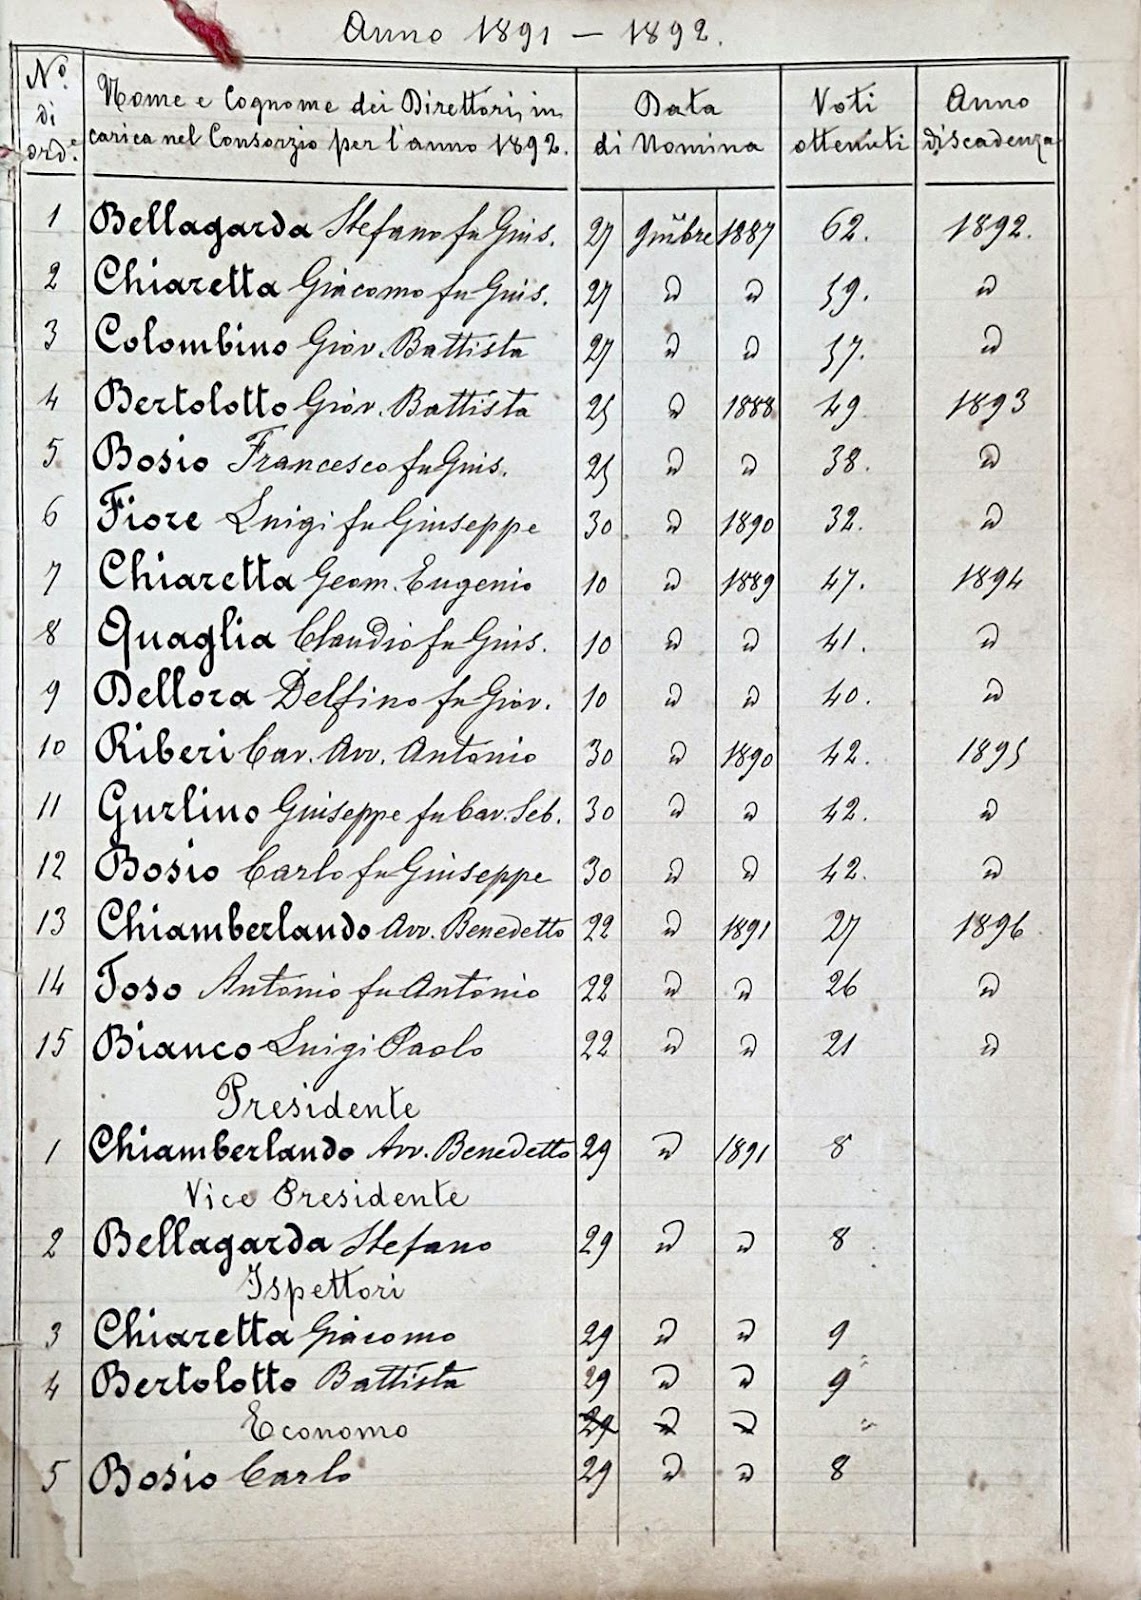 Anno 1891 — 1892.
N.º di ord.e
Nome e Cognome dei Direttori, in carica nel Consorzio per l'anno 1892.
Data di Nomina
Voti ottenuti
Anno di Scadenza
1 Bellagarda Stefano fu Gius. 27 9mbre 1887 62. 1892.
2 Chiaretta Giacomo fu Gius. 27 " " 59. "
3 Colombino Giov. Battista 27 " " 57. "
4 Bertolotto Giov. Battista 25 " 1888 49. 1893
5 Bosio Francesco fu Gius. 25 " " 38. "
6 Fiore Luigi fu Giuseppe 30 " 1890 32. "
7 Chiaretta Geom. Eugenio 10 " 1889 47. 1894
8 Quaglia Claudio fu Gius. 10 " " 41. "
9 Dellora Delfino fu Giov. 10 " " 40. "
10 Riberi Cav. Avv. Antonio 30 " 1890 42. 1895
11 Gurlino Giuseppe fu Cav. Seb. 30 " " 42. "
12 Bosio Carlo fu Giuseppe 30 " " 42. "
13 Chiamberlando Avv. Benedetto 22 " 1891 27 1896.
14 Toso Antonio fu Antonio 22 " " 26 "
15 Bianco Luigi Paolo 22 " " 21 "
Presidente
1 Chiamberlando Avv. Benedetto 29 " 1891 8
Vice Presidente
2 Bellagarda Stefano 29 " " 8
Ispettori
3 Chiaretta Giacomo 29 " " 9
4 Bertolotto Battista 29 " " 9
Economo 29 " "
5 Bosio Carlo 29 " " 8